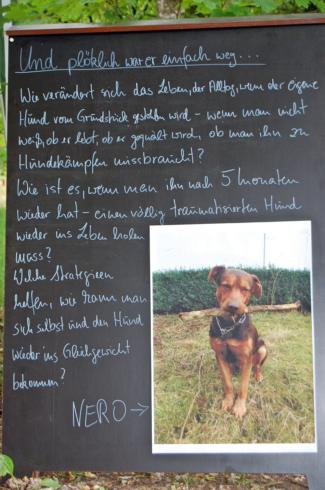 Und plötzlich war er einfach weg....
Wie verändert sich das Leben, der Alltag, wenn der eigene
Hund vom Grundstück gestohlen wird - wenn man nicht
weiß, ob er lebt, ob er gequält wird, ob man ihn zu
Hundekämpfen missbraucht?
Wie ist es, wenn man ihn nach 5 Monaten
wieder hat - einen völlig traumatisierten Hund
wieder ins Leben holen
muss?
Welche Strategieen
helfen, wie kann man
sich selbst und den Hund
wieder ins Gleichgewicht
bekommen?
NERO →